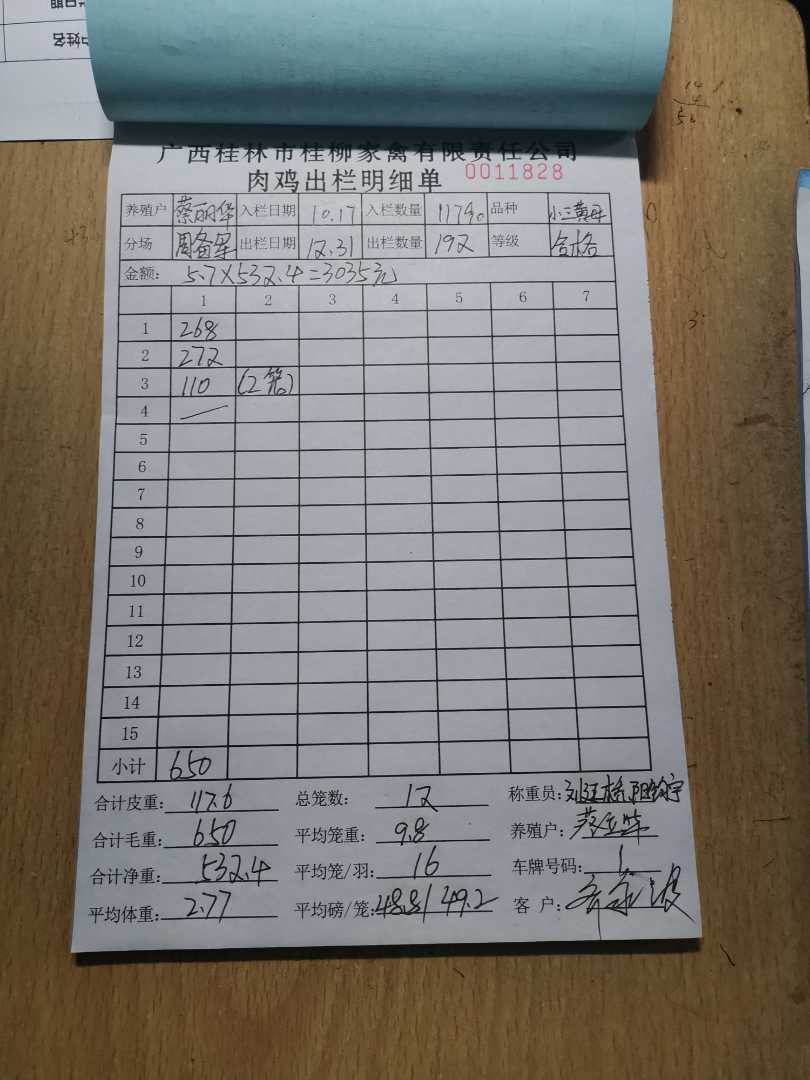 广西桂林市桂柳家禽有限责任公司
肉鸡出栏明细单 0011828
养殖户 蔡丽华 入栏日期 10.17 入栏数量 品种 小三黄母
分场 周备军 出栏日期 12.31 出栏数量 192 等级 合格
金额: 5.7×532.4=3035元
1 2 3 4 5 6 7
1 268
2 272
3 110 (2笼)
4
5
6
7
8
9
10
11
12
13
14
15
小计 650
合计皮重: 117.6 总笼数: 12 称重员:
合计毛重: 650 平均笼重: 9.8 养殖户:
合计净重: 532.4 平均笼/羽: 16 车牌号码: 1
平均体重: 2.77 平均磅/笼: 48.8/49.2 客户: